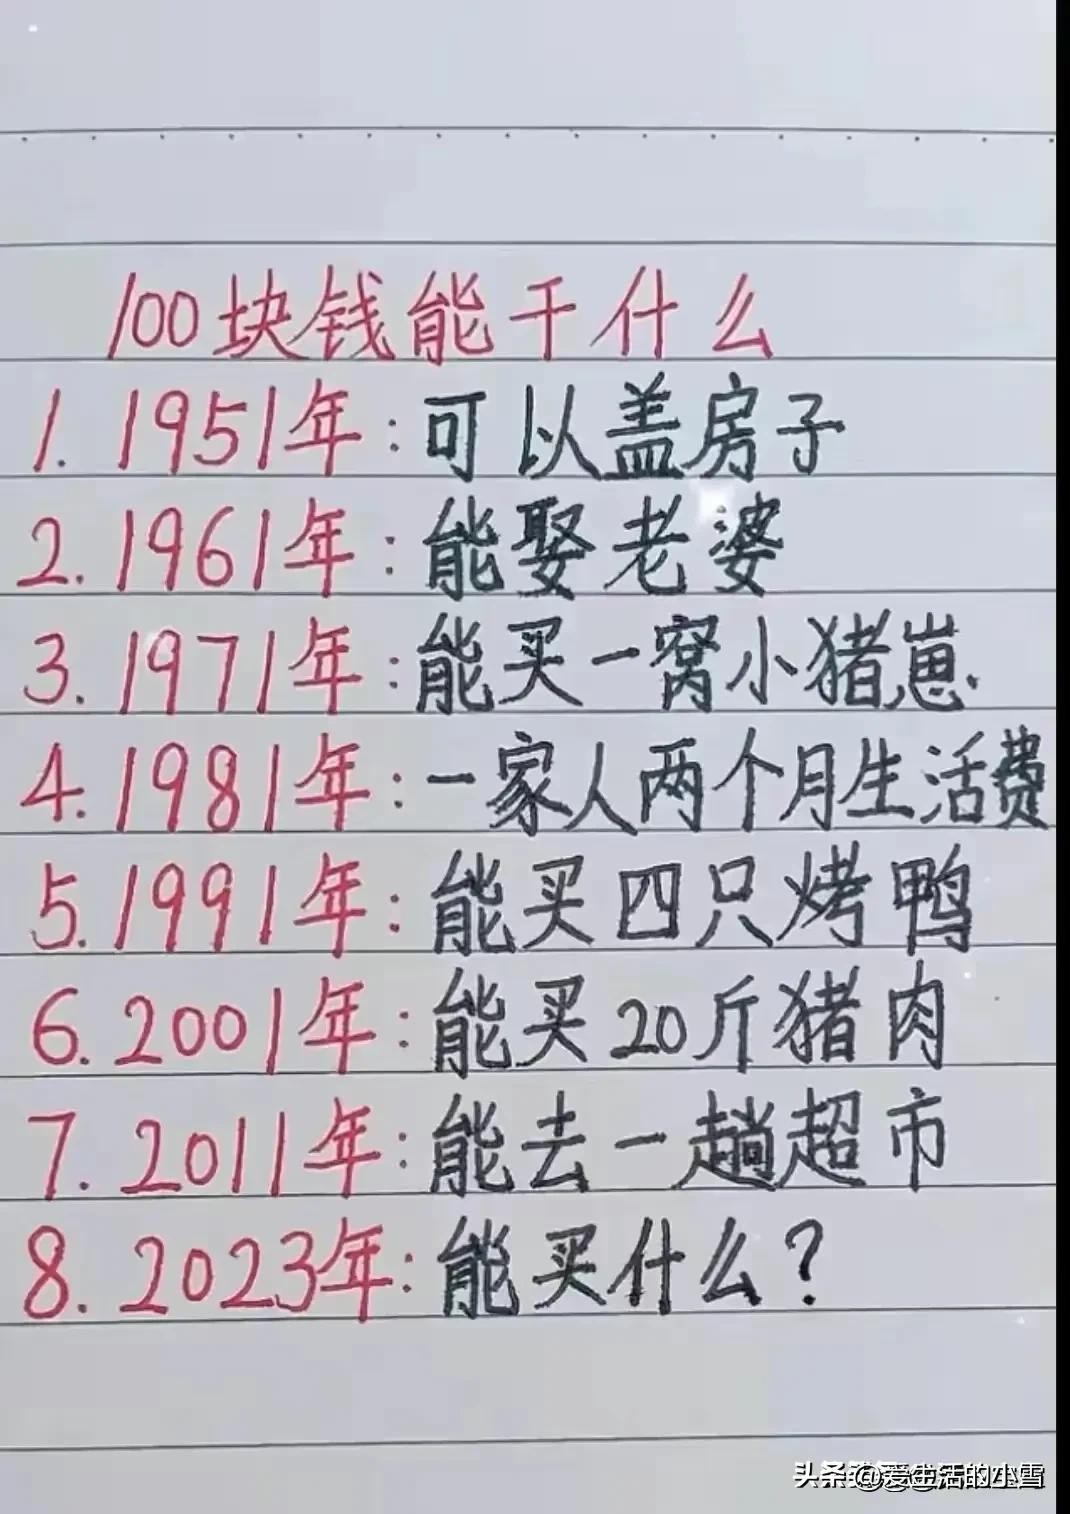 100块钱能干什么
1. 1951年:可以盖房子
2. 1961年:能娶老婆
3. 1971年:能买一窝小猪崽.
4. 1981年:一家人两个月生活费
5. 1991年:能买四只烤鸭
6. 2001年:能买20斤猪肉
7. 2011年:能去一趟超市
8. 2023年:能买什么?
头条 @爱生活的小雪